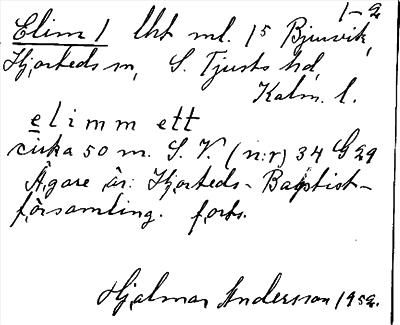 1-2
Elim 1 lht ml. 15 Bjursvik,
Hjorteds sn, S. Tjusts hd,
Kalm. l.
elimm ett
cirka 50 m. S. V. (n:r) 34 G 29
Ägare är: Hjorteds-Baptist-
församling. forts.
Hjalmar Andersson 1952.